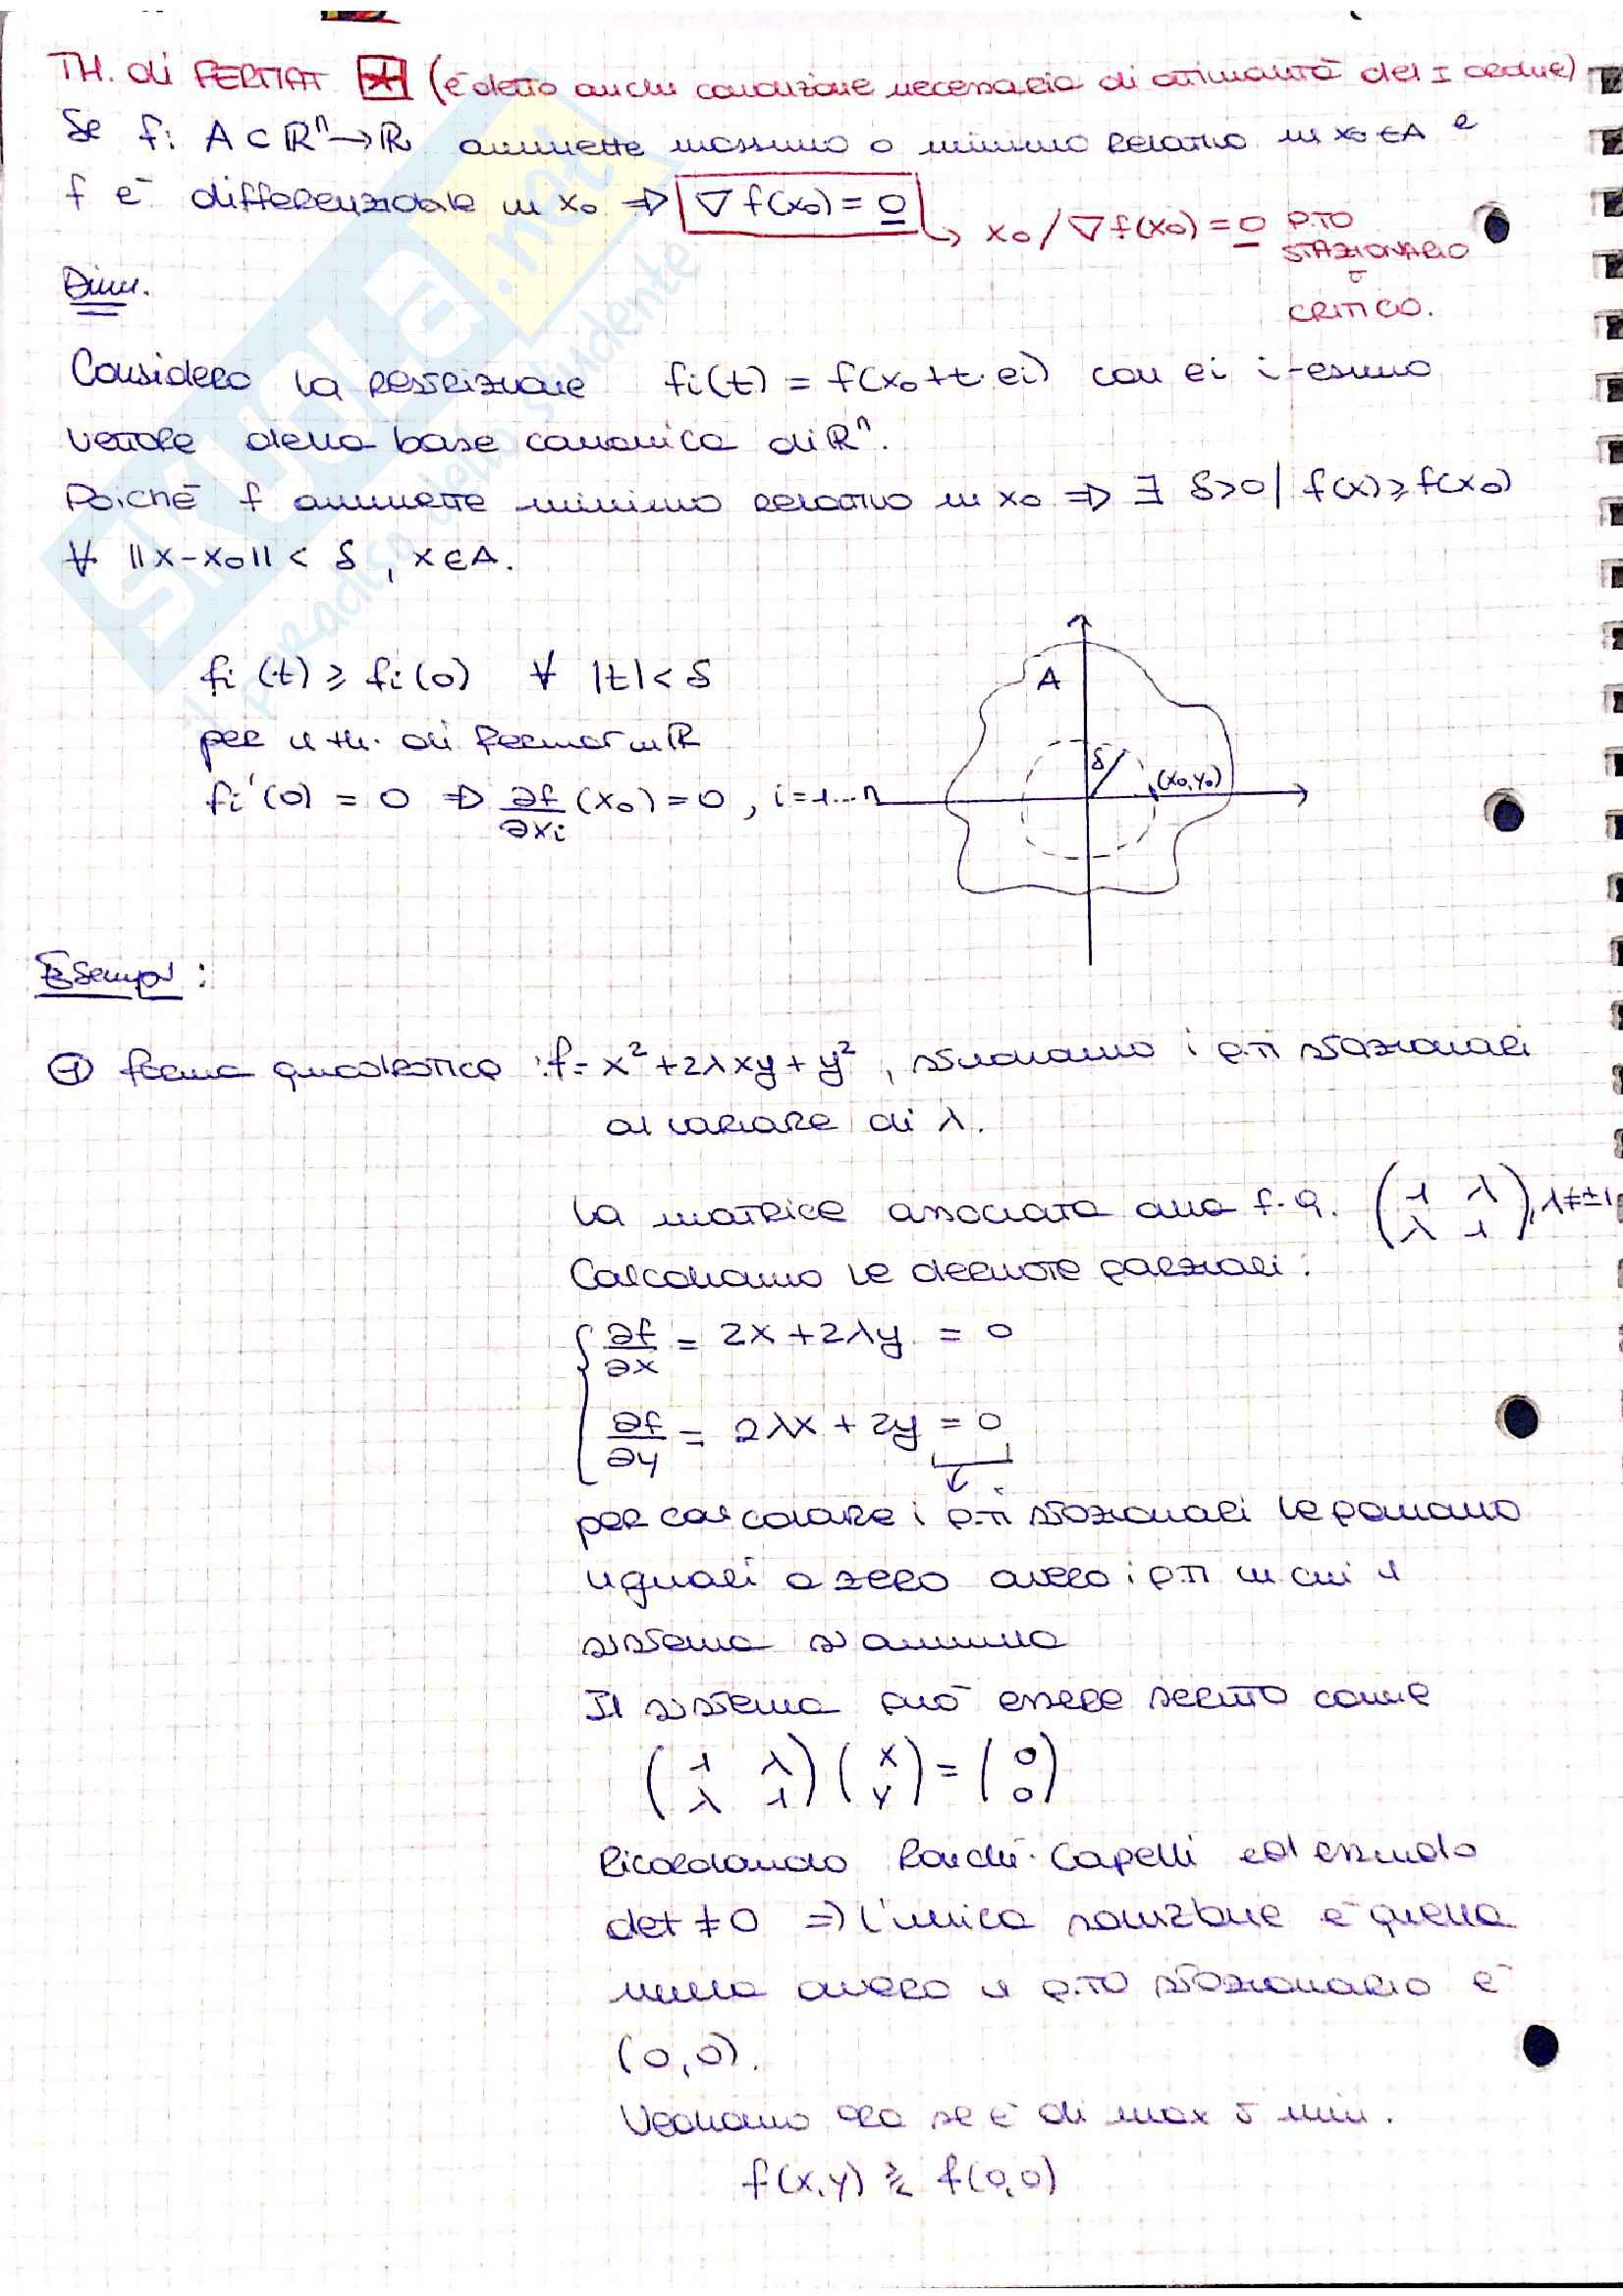 TH. di FERMAT * (è detto anche condizione necessaria di ottimalità del I ordine)
Se f: A ⊂ ℝⁿ → ℝ ammette massimo o minimo relativo in x₀ ∈ A e
f è differenziabile in x₀ ⇒ ∇f(x₀) = 0
↳ x₀ / ∇f(x₀) = 0 P.TO
STAZIONARIO
o
CRITICO.
Dim.
Considero la restrizione fi(t) = f(x₀+t·ei) con ei i-esimo
vettore della base canonica di ℝⁿ.
Poiché f ammette minimo relativo in x₀ ⇒ ∃ δ>0 | f(x) ≥ f(x₀)
∀ ||x-x₀|| < δ, x ∈ A.
fi(t) ≥ fi(0) ∀ |t| < δ
per il th. di Fermat in ℝ
fi'(0) = 0 ⇒ ∂f/∂xi (x₀) = 0, i=1...n
A
δ
(x₀,y₀)
Esempi:
① forma quadratica : f = x² + 2λxy + y², studiamo i p.ti stazionari
al variare di λ.
La matrice associata alla f.q. (1 λ
λ 1), λ≠±1
Calcoliamo le derivate parziali:
∂f/∂x = 2x + 2λy = 0
∂f/∂y = 2λx + 2y = 0
per calcolare i p.ti stazionari le poniamo
uguali a zero ovvero i p.ti in cui il
sistema si annulla
Il sistema può essere scritto come
(1 λ
λ 1) (x
y) = (0
0)
Ricordando Rouché-Capelli ed essendo
det ≠ 0 ⇒ l'unica soluzione è quella
nulla ovvero il p.to stazionario è
(0,0).
Vediamo ora se è di max o min.
f(x,y) ≷ f(0,0)
SKUOLA.net
il paradiso dello studente